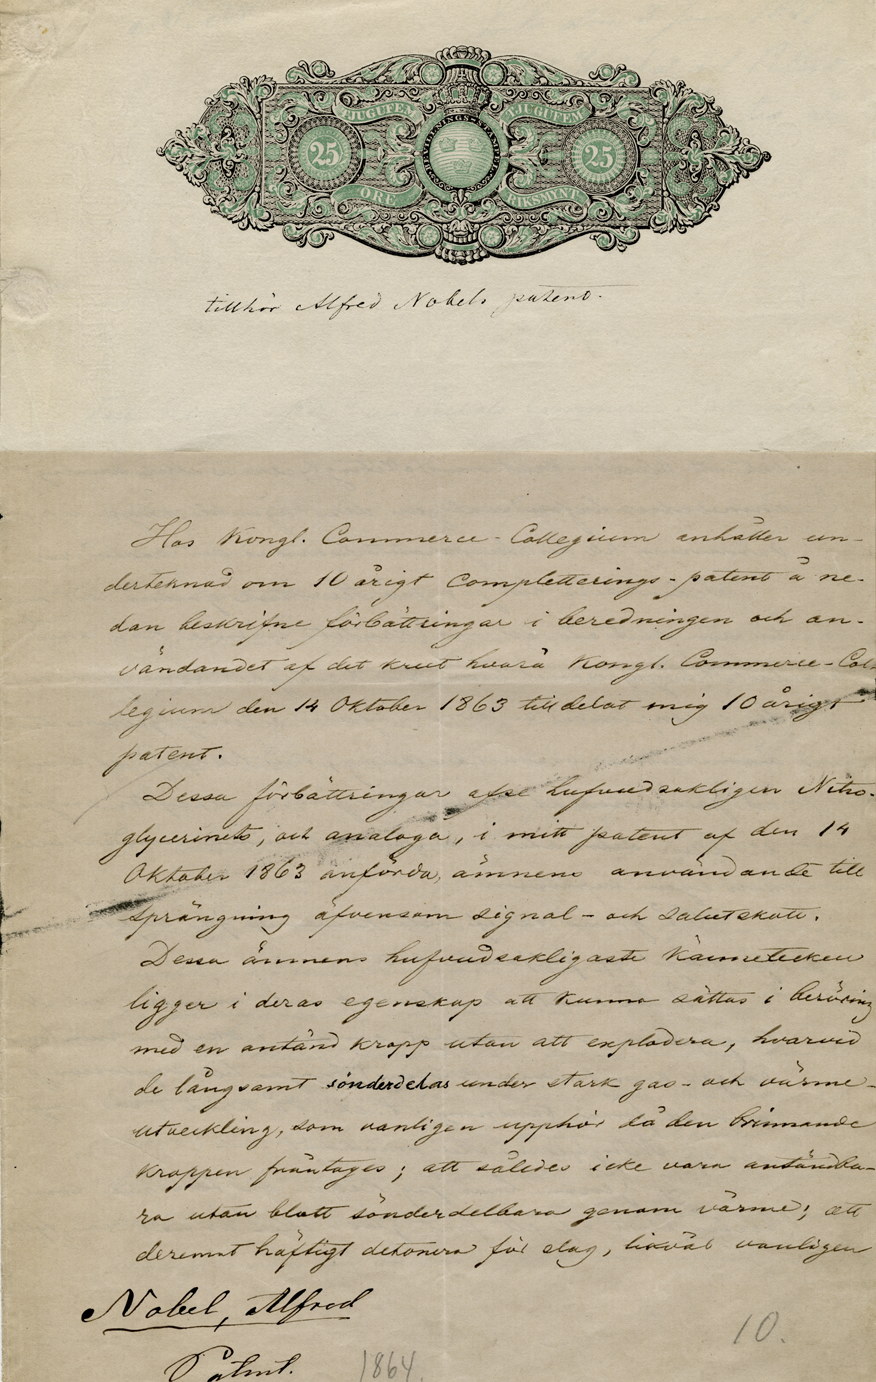 TJUGUFEM TJUGUFEM
25 BEVILLNINGS-STÄMPEL 25
ÖRE RIKSMYNT
tillhör Alfred Nobels patent.
Hos Kongl. Commerce-Collegium anhåller un-
dertecknad om 10 årigt completterings-patent å ne-
dan beskrifne förbättringar i beredningen och an-
vändandet af det krut hvarå Kongl. Commerce-Col-
legium den 14 Oktober 1863 tilldelat mig 10 årigt
patent.
Dessa förbättringar afse hufvudsakligen Nitro-
glycerinets, och analoga, i mitt patent af den 14
Oktober 1863 anförda, ämnens användande till
sprängning äfvensom signal- och salutskott.
Dessa ämnens hufvudsakligaste kännetecken
ligger i deras egenskap att kunna sättas i beröring
med en antänd kropp utan att explodera, hvarvid
de långsamt sönderdelas under stark gas- och värme-
utveckling, som vanligen upphör då den brinnande
kroppen fråntages; att således icke vara antändba-
ra utan blott sönderdelbara genom värme; att
deremot häftigt detonera för slag, likväl vanligen
Nobel, Alfred
10.
Patent. 1864.